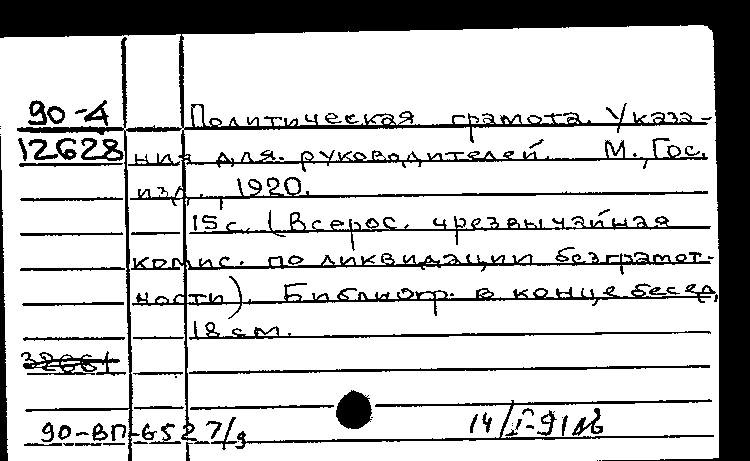 90-4 Политическая грамота. Указа-
12628 ния для. руководителей. М., Гос.
изд., 1920.
15 с. (Всерос. чрезвычайная
комис. по ликвидации безграмот-
ности). Библиогр. в конце бесед.
18 см.
32661
90-ВП-6527/9
14/I-91